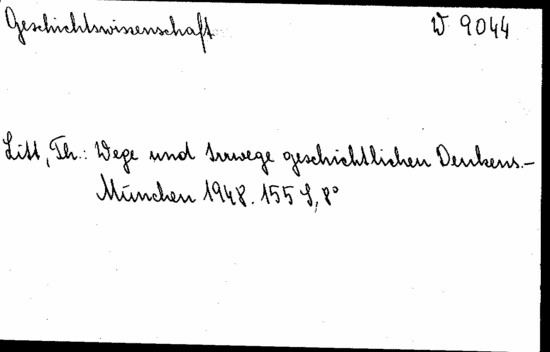 Geschichtswissenschaft W 9044
Litt, Th.: Wege und Irrwege geschichtlichen Denkens.–
München 1948. 155 S, 8°